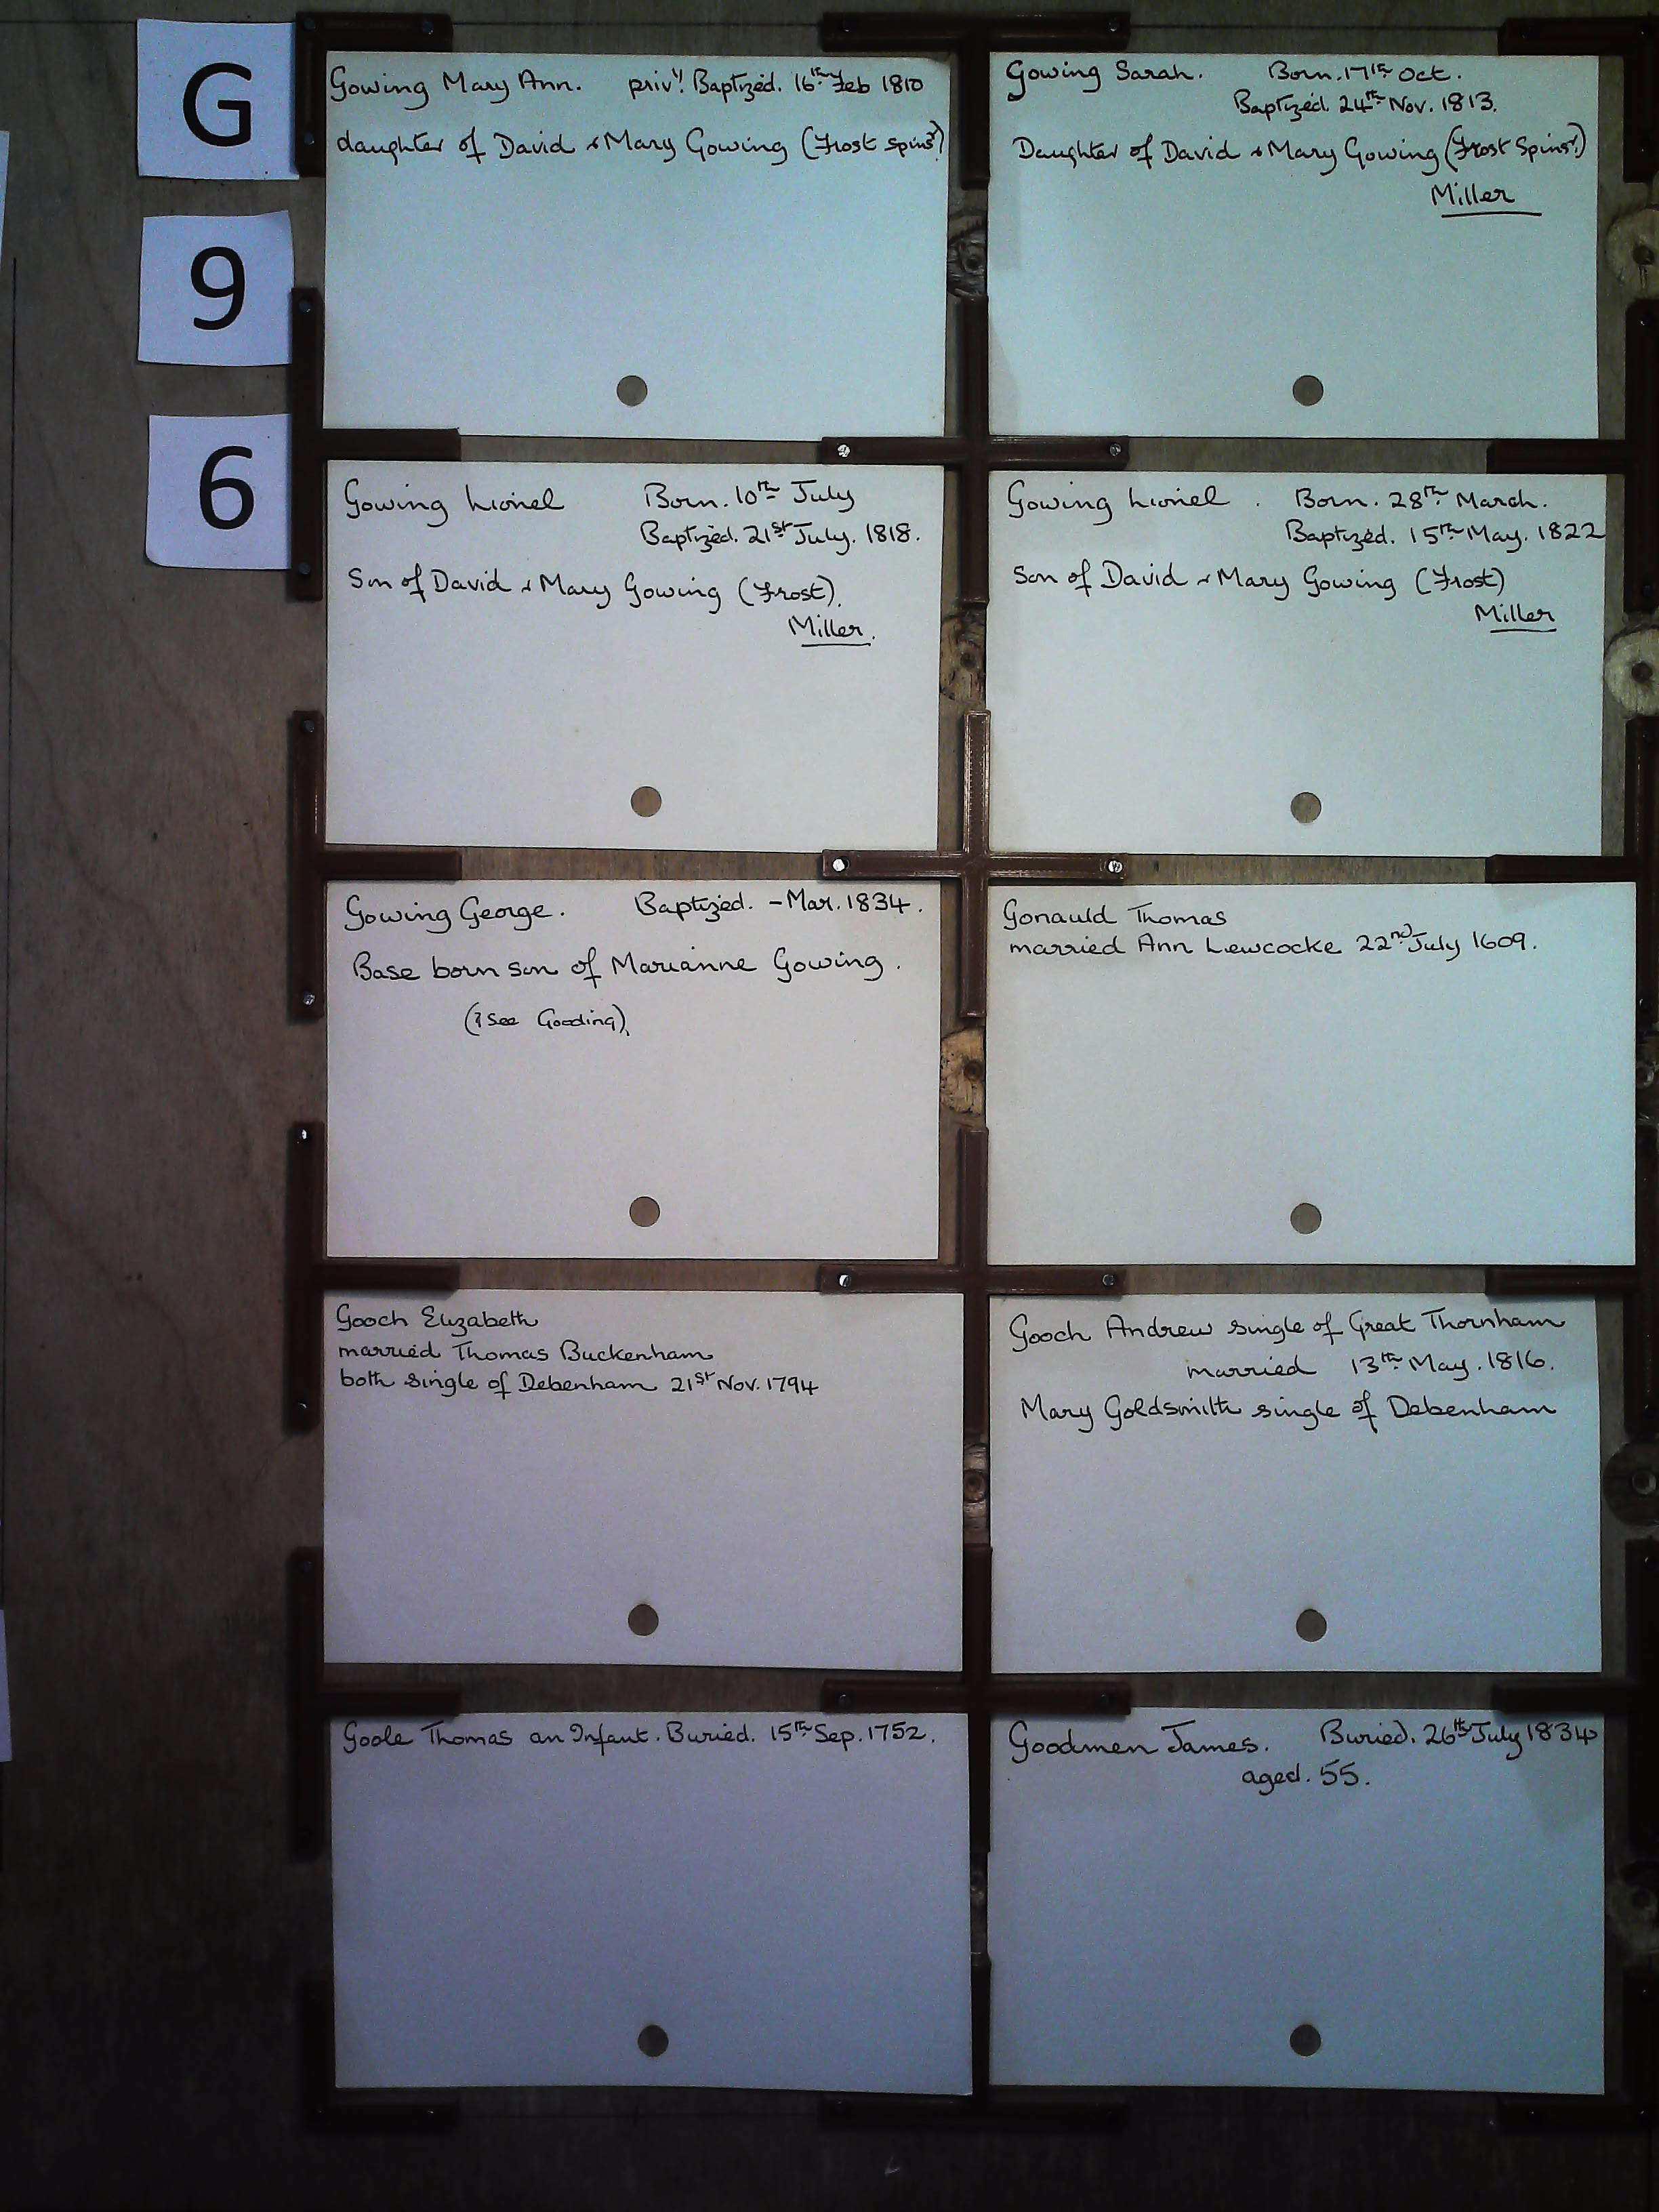 G
9
6
Gowing Mary Ann. privly Baptized. 16th Feb 1810
daughter of David & Mary Gowing (Frost Spinsr)
Gowing Sarah. Born. 17th Oct.
Baptized. 24th Nov. 1813.
Daughter of David & Mary Gowing (Frost Spinsr.)
Miller
Gowing Lionel Born. 10th July
Baptized. 21st July. 1818.
Son of David & Mary Gowing (Frost).
Miller.
Gowing Lionel. Born. 28th March.
Baptized. 15th May. 1822
Son of David & Mary Gowing (Frost)
Miller
Gowing George. Baptized. - Mar. 1834.
Base born son of Marianne Gowing.
(? See Gooding)
Gonauld Thomas
married Ann Lewcocke 22nd July 1609.
Gooch Elizabeth
married Thomas Buckenham
both single of Debenham 21st Nov. 1794
Gooch Andrew single of Great Thornham
married 13th May. 1816.
Mary Goldsmith single of Debenham
Goole Thomas an Infant. Buried. 15th Sep. 1752.
Goodmen James. Buried. 26th July 1834
aged. 55.